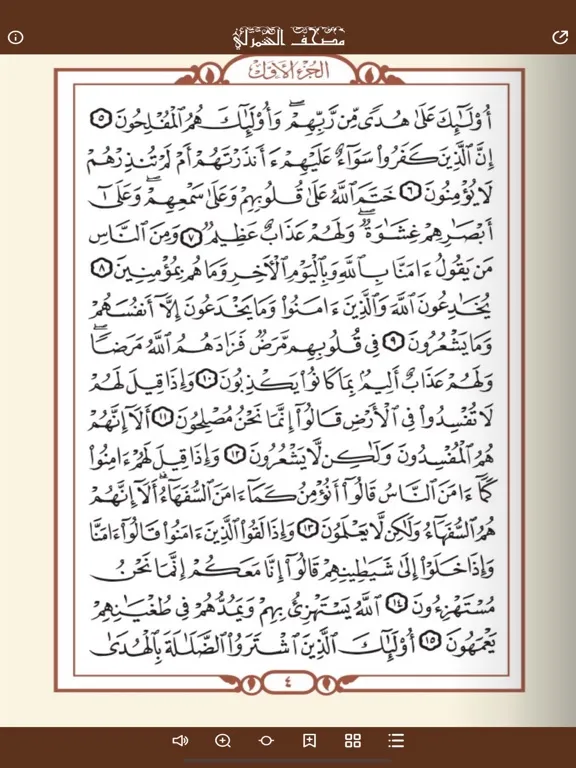 مصحف الشمرلي
الجزء الأول
أُوْلَـٰٓئِكَ عَلَىٰ هُدًى مِّن رَّبِّهِمْ ۖ وَأُوْلَـٰٓئِكَ هُمُ ٱلْمُفْلِحُونَ ٥
إِنَّ ٱلَّذِينَ كَفَرُواْ سَوَآءٌ عَلَيْهِمْ ءَأَنذَرْتَهُمْ أَمْ لَمْ تُنذِرْهُمْ
لَا يُؤْمِنُونَ ٦ خَتَمَ ٱللَّهُ عَلَىٰ قُلُوبِهِمْ وَعَلَىٰ سَمْعِهِمْ ۖ وَعَلَىٰٓ
أَبْصَـٰرِهِمْ غِشَـٰوَةٌ ۖ وَلَهُمْ عَذَابٌ عَظِيمٌ ٧ وَمِنَ ٱلنَّاسِ
مَن يَقُولُ ءَامَنَّا بِٱللَّهِ وَبِٱلْيَوْمِ ٱلْأَخِرِ وَمَا هُم بِمُؤْمِنِينَ ٨
يُخَـٰدِعُونَ ٱللَّهَ وَٱلَّذِينَ ءَامَنُواْ وَمَا يَخْدَعُونَ إِلَّآ أَنفُسَهُمْ
وَمَا يَشْعُرُونَ ٩ فِى قُلُوبِهِم مَّرَضٌ فَزَادَهُمُ ٱللَّهُ مَرَضًا ۖ
وَلَهُمْ عَذَابٌ أَلِيمٌۢ بِمَا كَانُواْ يَكْذِبُونَ ١٠ وَإِذَا قِيلَ لَهُمْ
لَا تُفْسِدُواْ فِى ٱلْأَرْضِ قَالُوٓاْ إِنَّمَا نَحْنُ مُصْلِحُونَ ١١ أَلَآ إِنَّهُمْ
هُمُ ٱلْمُفْسِدُونَ وَلَـٰكِن لَّا يَشْعُرُونَ ١٢ وَإِذَا قِيلَ لَهُمْ ءَامِنُواْ
كَمَآ ءَامَنَ ٱلنَّاسُ قَالُوٓاْ أَنُؤْمِنُ كَمَآ ءَامَنَ ٱلسُّفَهَآءُ ۗ أَلَآ إِنَّهُمْ
هُمُ ٱلسُّفَهَآءُ وَلَـٰكِن لَّا يَعْلَمُونَ ١٣ وَإِذَا لَقُواْ ٱلَّذِينَ ءَامَنُواْ قَالُوٓاْ ءَامَنَّا
وَإِذَا خَلَوْاْ إِلَىٰ شَيَـٰطِينِهِمْ قَالُوٓاْ إِنَّا مَعَكُمْ إِنَّمَا نَحْنُ
مُسْتَهْزِءُونَ ١٤ ٱللَّهُ يَسْتَهْزِئُ بِهِمْ وَيَمُدُّهُمْ فِى طُغْيَـٰنِهِمْ
يَعْمَهُونَ ١٥ أُوْلَـٰٓئِكَ ٱلَّذِينَ ٱشْتَرَوُاْ ٱلضَّلَـٰلَةَ بِٱلْهُدَىٰ
٤